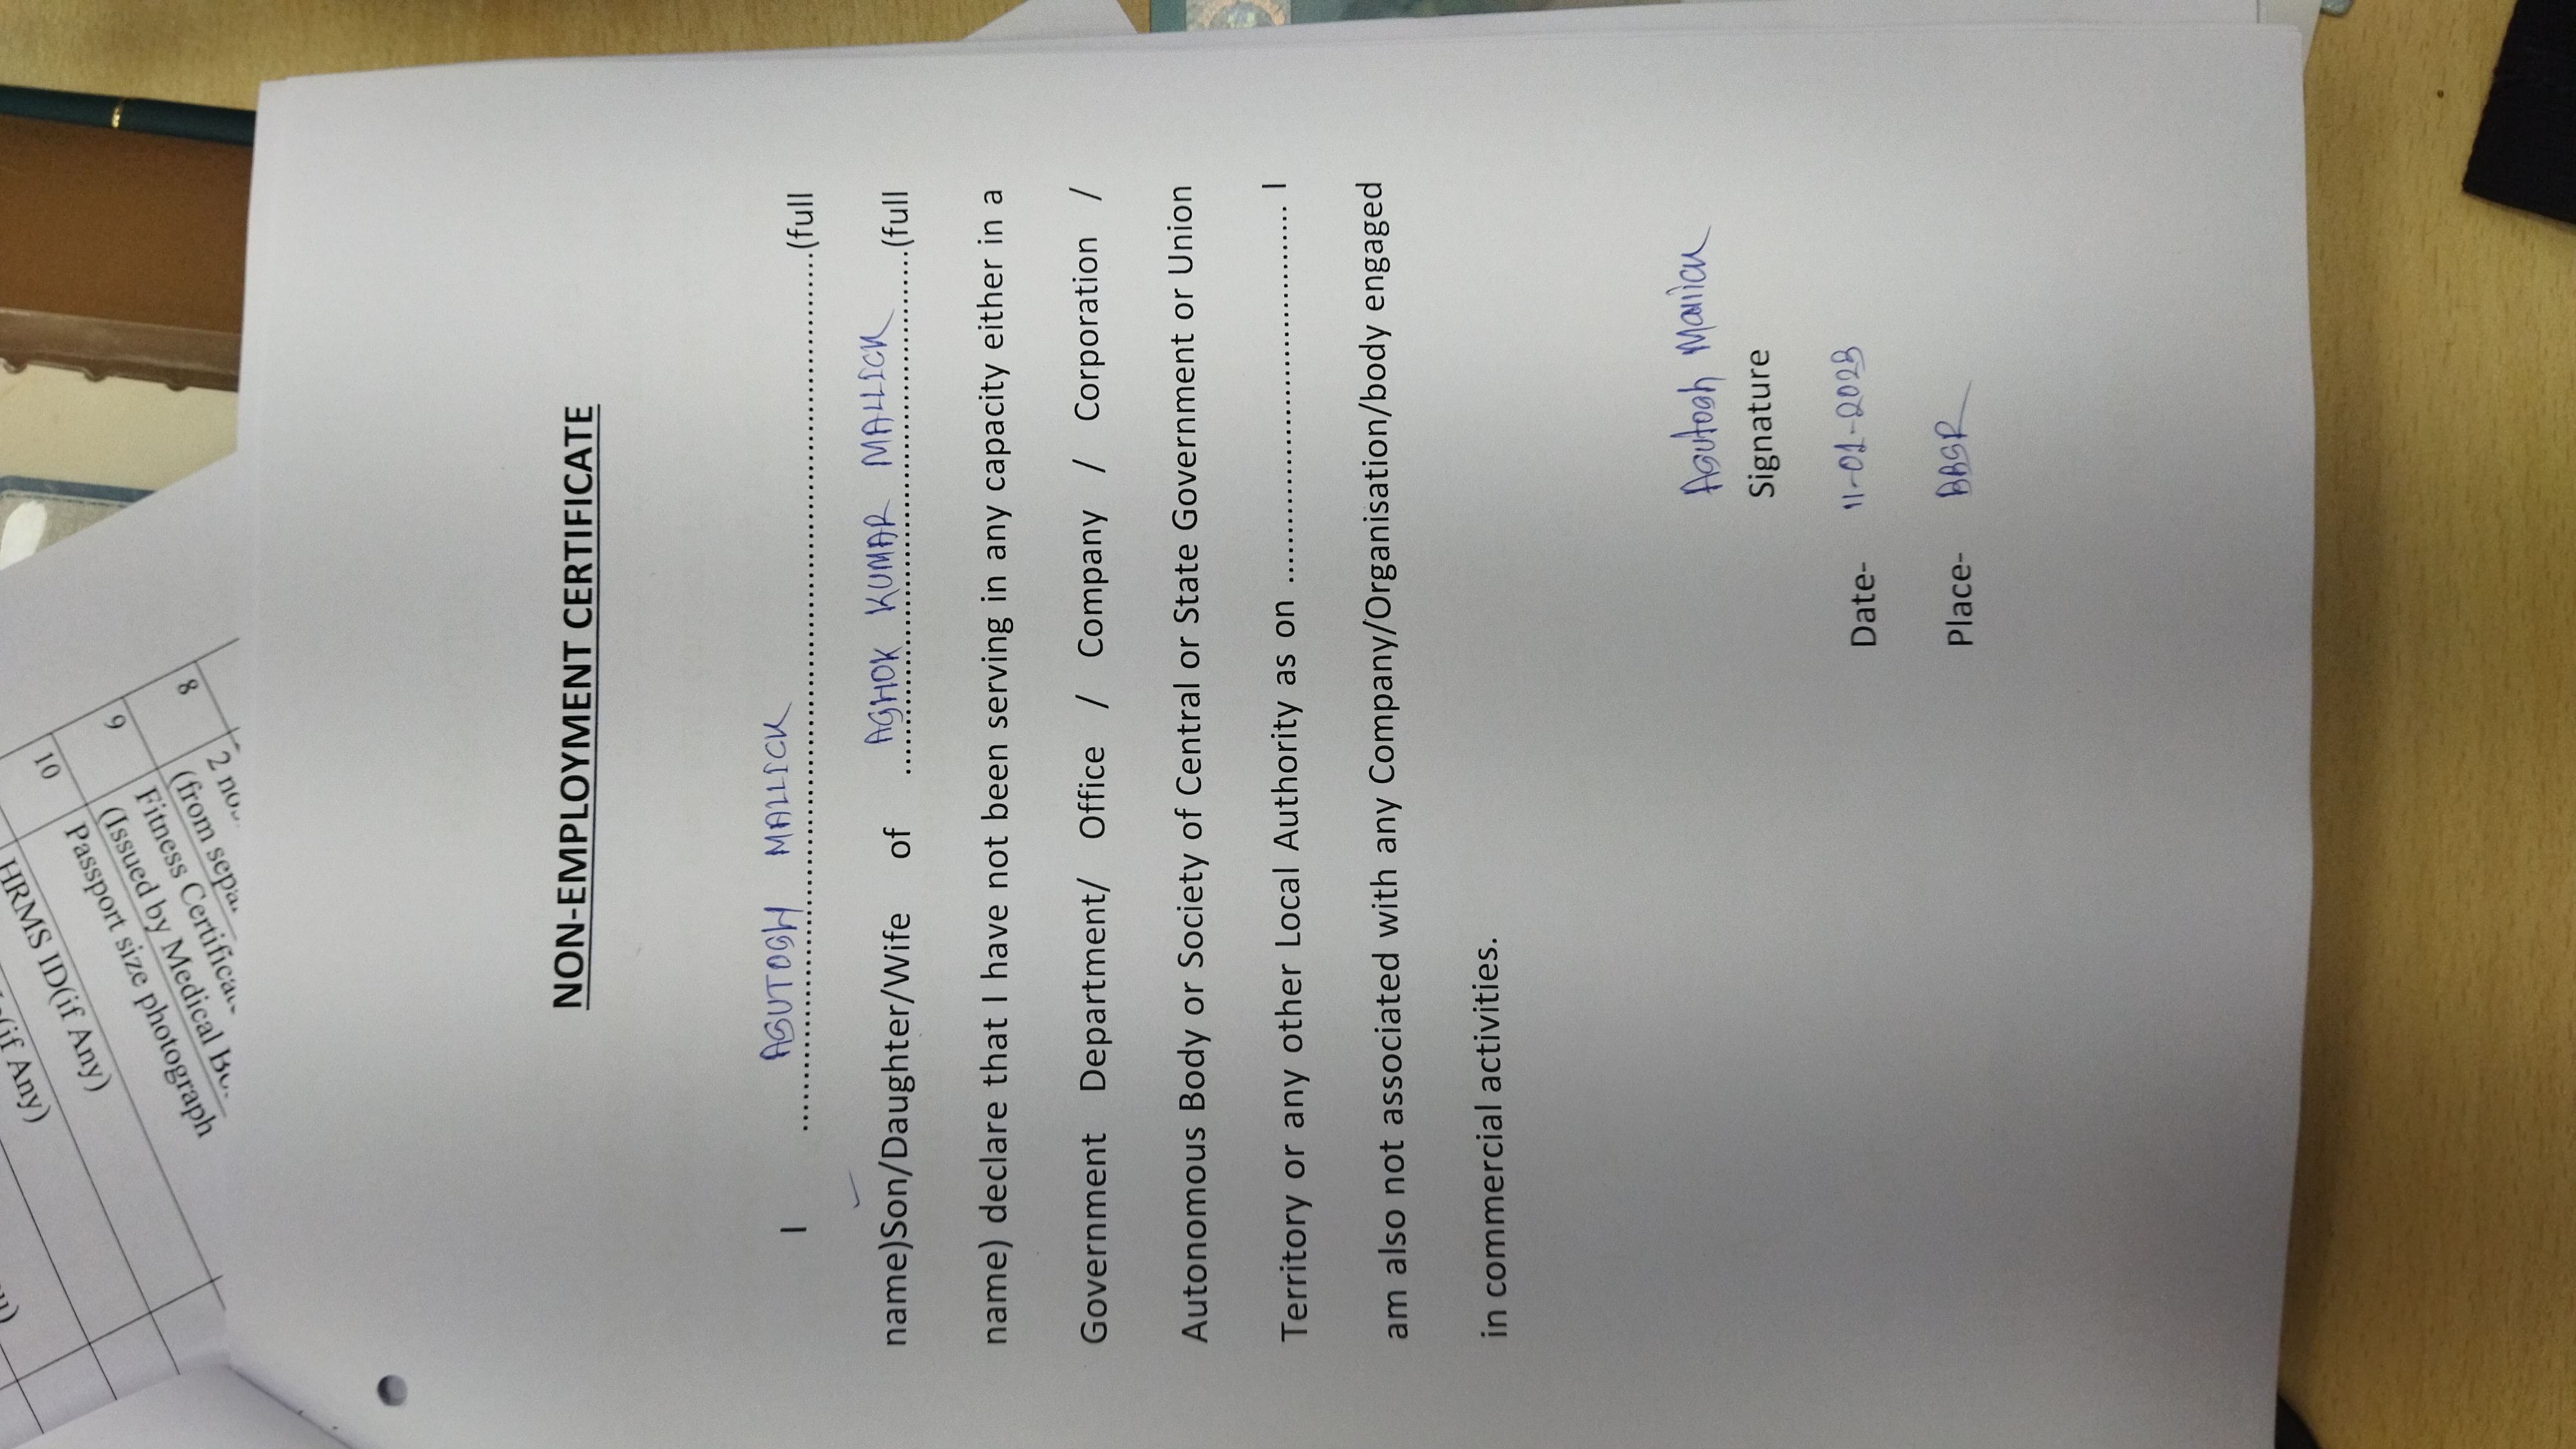 NON-EMPLOYMENT CERTIFICATE
I .......... ASUTOSH MALLICK ..........(full
name)Son/Daughter/Wife of .......... ASHOK KUMAR MALLICK ..........(full
name) declare that I have not been serving in any capacity either in a
Government Department/ Office / Company / Corporation /
Autonomous Body or Society of Central or State Government or Union
Territory or any other Local Authority as on .............................. I
am also not associated with any Company/Organisation/body engaged
in commercial activities.
Asutosh Mallick
Signature
Date- 11-01-2023
Place- BBSR
8
2 no.
(from sepa
9
Fitness Certifica
(Issued by Medical B
10
Passport size photograph
HRMS ID(if Any)
(if Any)